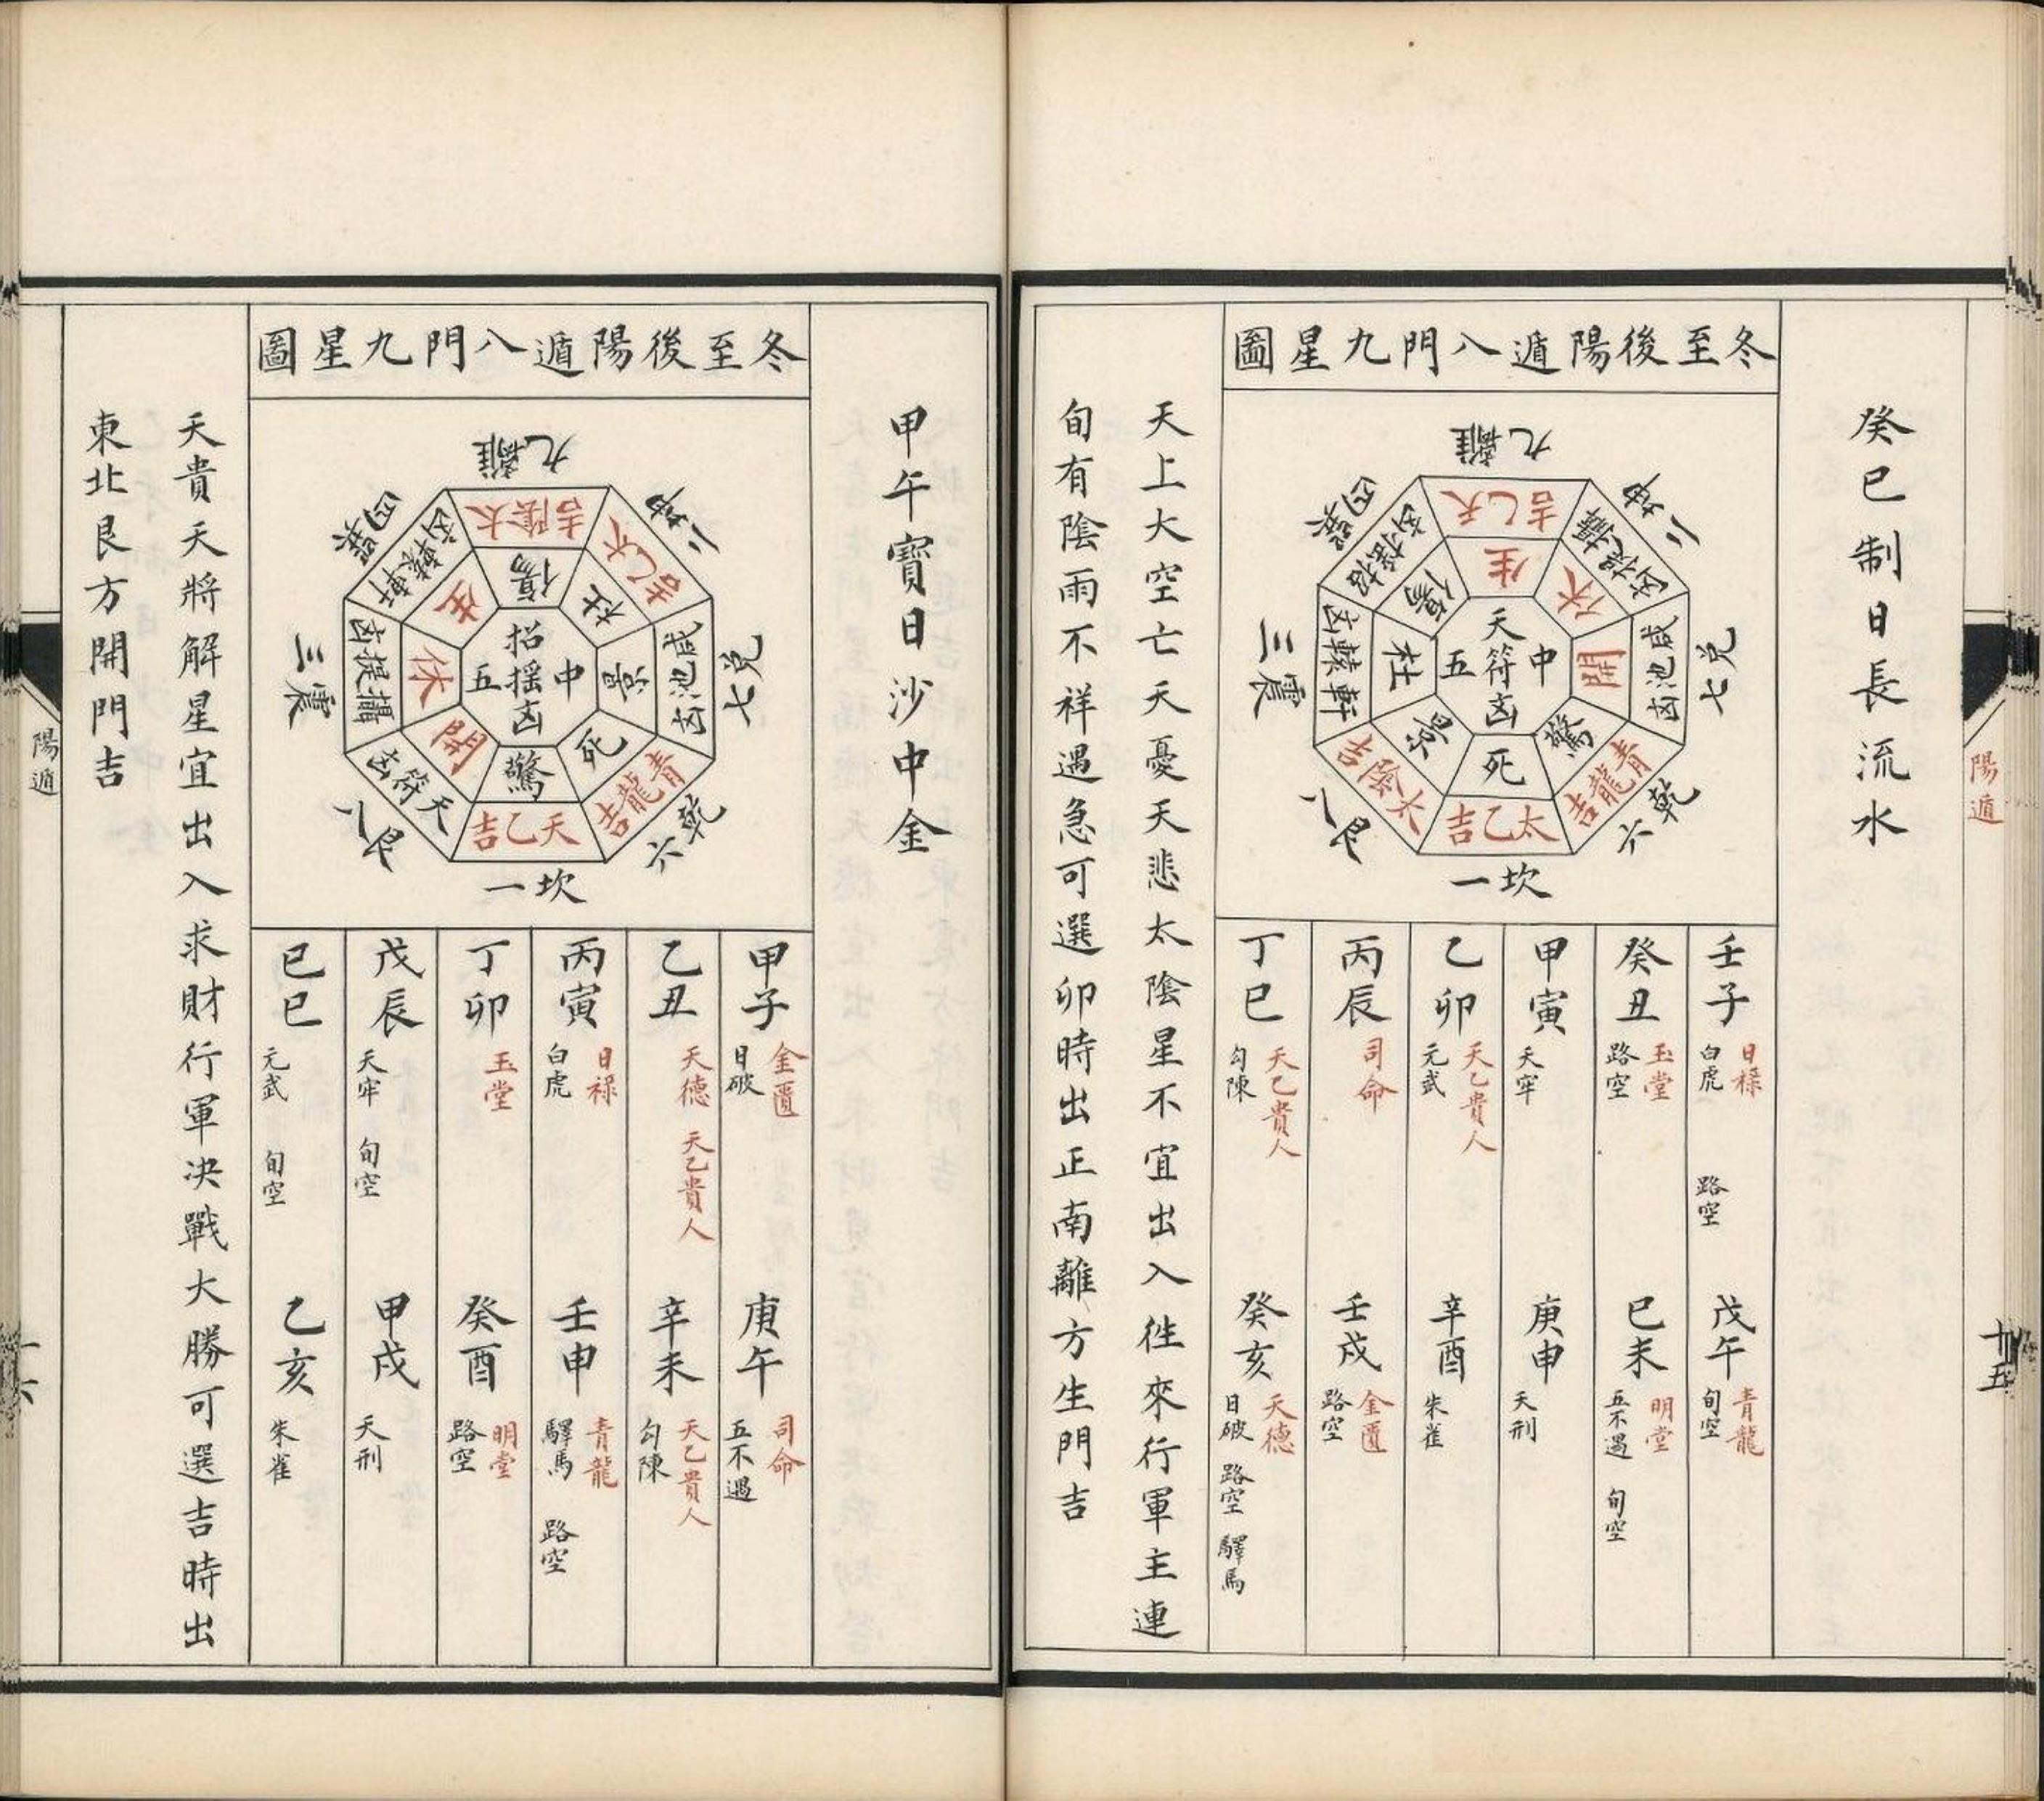 陽遁
十五
癸巳制日長流水
冬至後陽遁八門九星圖
九離
二坤
七兌
六乾
一坎
八艮
三震
四巽
天乙吉
攝提凶
咸池凶
青龍吉
太乙吉
太陰吉
軒轅凶
招搖凶
生
休
開
驚
死
景
杜
傷
中
天符凶
五
壬子 日祿 白虎 路空
戊午 青龍 旬空
癸丑 玉堂 路空
已未 明堂 五不遇 旬空
甲寅 天牢
庚申 天刑
乙卯 天乙貴人 元武
辛酉 朱雀
丙辰 司命
壬戌 金匱 路空
丁巳 天乙貴人 勾陳
癸亥 天德 日破 路空 驛馬
天上大空亡天憂天悲太陰星不宜出入徃來行軍主連
旬有陰雨不祥遇急可選卯時出正南離方生門吉
甲午寶日沙中金
冬至後陽遁八門九星圖
九離
二坤
七兌
六乾
一坎
八艮
三震
四巽
太陰吉
太乙吉
咸池凶
青龍吉
天乙吉
天符凶
攝提凶
軒轅凶
傷
杜
景
死
驚
開
休
生
中
招摇凶
五
甲子 金匱 日破
庚午 司命 五不遇
乙丑 天德 天乙貴人
辛未 天乙貴人 勾陳
丙寅 日祿 白虎
壬申 青龍 驛馬 路空
丁卯 玉堂
癸酉 明堂 路空
戊辰 天牢 旬空
甲戌 天刑
已巳 元武 旬空
乙亥 朱雀
天貴天將解星宜出入求財行軍决戰大勝可選吉時出
東北艮方開門吉
陽遁